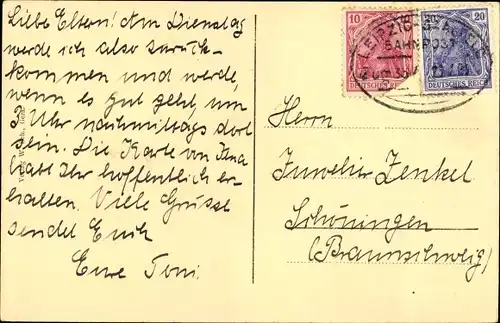 Liebe Eltern! Am Dienstag
werde ich also zurück-
kommen und werde,
wenn es gut geht, um
3 Uhr nachmittags dort
sein. Die Karte von
habt Ihr hoffentlich er-
halten. Viele Grüsse
sendet Euch
Eure Toni.
10
DEUTSCHES REICH
20
DEUTSCHES REICH
LEIPZIG
BAHNPOST
Herrn
Juwelier Zenkel
Schöningen
(Braunschweig)